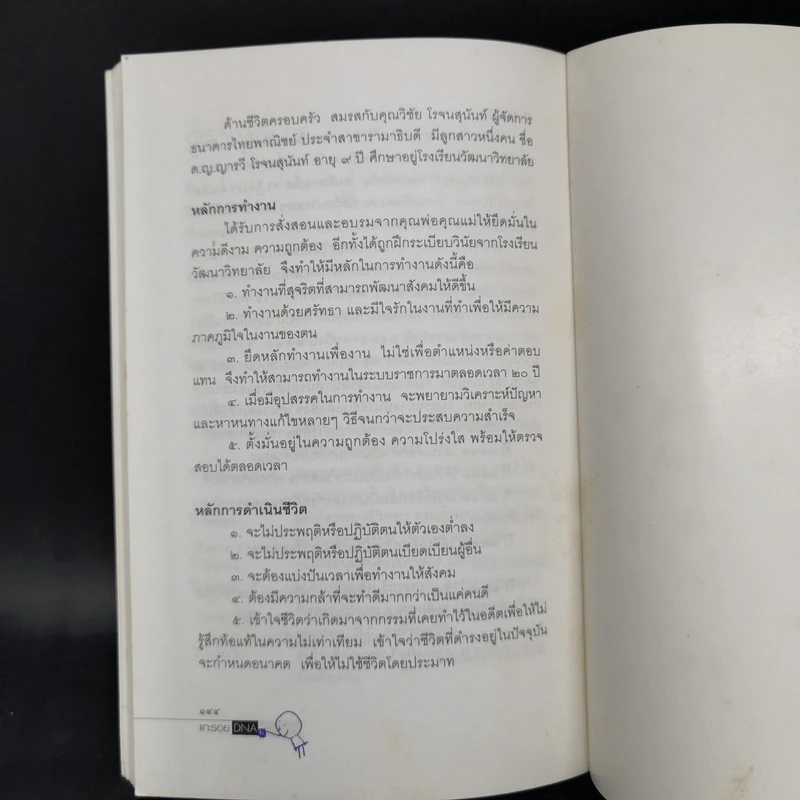 ด้านชีวิตครอบครัว สมรสกับคุณวิชัย โรจนสุนันท์ ผู้จัดการ
ธนาคารไทยพาณิชย์ ประจำสาขารามาธิบดี มีลูกสาวหนึ่งคน ชื่อ
ด.ญ.ญารวี โรจนสุนันท์ อายุ ๙ ปี ศึกษาอยู่โรงเรียนวัฒนาวิทยาลัย
หลักการทำงาน
ได้รับการสั่งสอนและอบรมจากคุณพ่อคุณแม่ให้ยึดมั่นใน
ความดีงาม ความถูกต้อง อีกทั้งได้ถูกฝึกระเบียบวินัยจากโรงเรียน
วัฒนาวิทยาลัย จึงทำให้มีหลักในการทำงานดังนี้คือ
๑. ทำงานที่สุจริตที่สามารถพัฒนาสังคมให้ดีขึ้น
๒. ทำงานด้วยศรัทธา และมีใจรักในงานที่ทำเพื่อให้มีความ
ภาคภูมิใจในงานของตน
๓. ยึดหลักทำงานเพื่องาน ไม่ใช่เพื่อตำแหน่งหรือค่าตอบ
แทน จึงทำให้สามารถทำงานในระบบราชการมาตลอดเวลา ๒๐ ปี
๔. เมื่อมีอุปสรรคในการทำงาน จะพยายามวิเคราะห์ปัญหา
และหาหนทางแก้ไขหลายๆ วิธีจนกว่าจะประสบความสำเร็จ
๕. ตั้งมั่นอยู่ในความถูกต้อง ความโปร่งใส พร้อมให้ตรวจ
สอบได้ตลอดเวลา
หลักการดำเนินชีวิต
๑. จะไม่ประพฤติหรือปฏิบัติตนให้ตัวเองต่ำลง
๒. จะไม่ประพฤติหรือปฏิบัติตนเบียดเบียนผู้อื่น
๓. จะต้องแบ่งปันเวลาเพื่อทำงานให้สังคม
๔. ต้องมีความกล้าที่จะทำดีมากกว่าเป็นแค่คนดี
๕. เข้าใจชีวิตว่าเกิดมาจากกรรมที่เคยทำไว้ในอดีตเพื่อให้ไม่
รู้สึกท้อแท้ในความไม่เท่าเทียม เข้าใจว่าชีวิตที่ดำรงอยู่ในปัจจุบัน
จะกำหนดอนาคต เพื่อให้ไม่ใช้ชีวิตโดยประมาท
๑๔๔
แกะรอย DNA